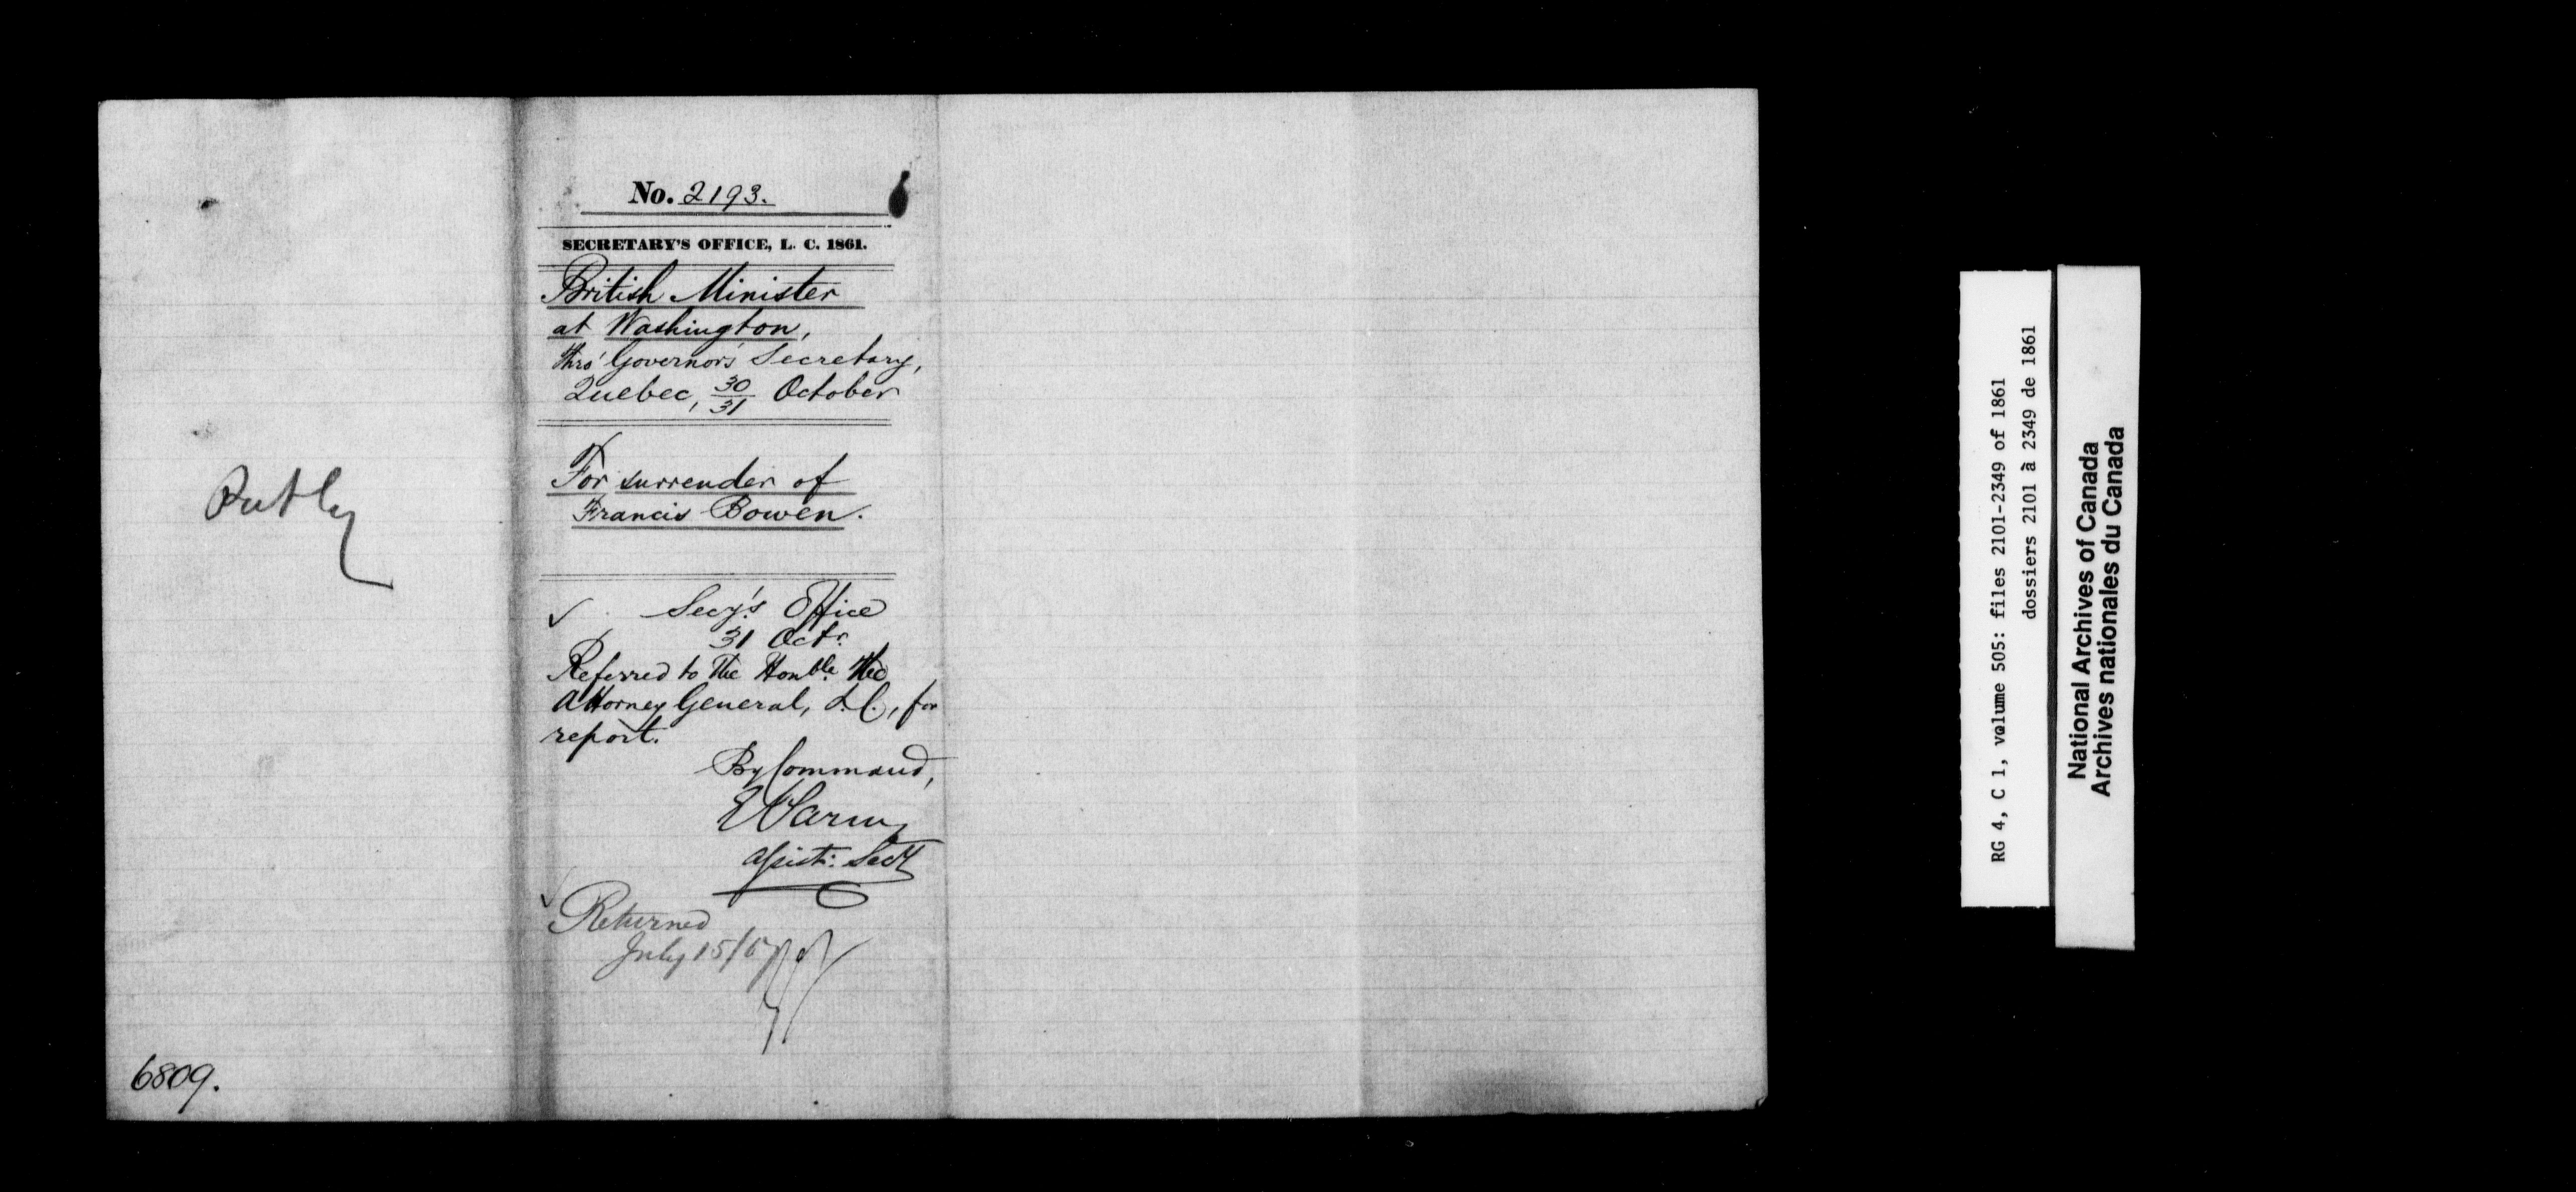 No. 2193.
SECRETARY'S OFFICE, L. C. 1861.
British Minister
at Washington,
thro' Governor's Secretary,
Quebec, 30/31 October
For surrender of
Francis Bowen.
Secy's Office
31 Octr.
Referred to the Honble. the
Attorney General, L.C., for
report.
By Command,
Assist: Secy
Returned
July 15/67
6809.
RG 4, C 1, volume 505: files 2101-2349 of 1861
dossiers 2101 à 2349 de 1861
National Archives of Canada
Archives nationales du Canada